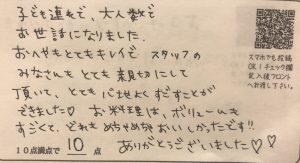 子ども連れで、大人数で
お世話になりました。
おへやもとてもキレイで スタッフの
みなさんも とても 親切にして
頂いて、とても 心地よく すごすことが
できました♡ お料理は、ボリュームも
すごくて、どれも めちゃめちゃ おいしかったです!!
ありがとうございました♡♡
10点満点で 10 点
スマホでも投稿
OK！チェック欄
記入後フロント
へお渡し下さい。